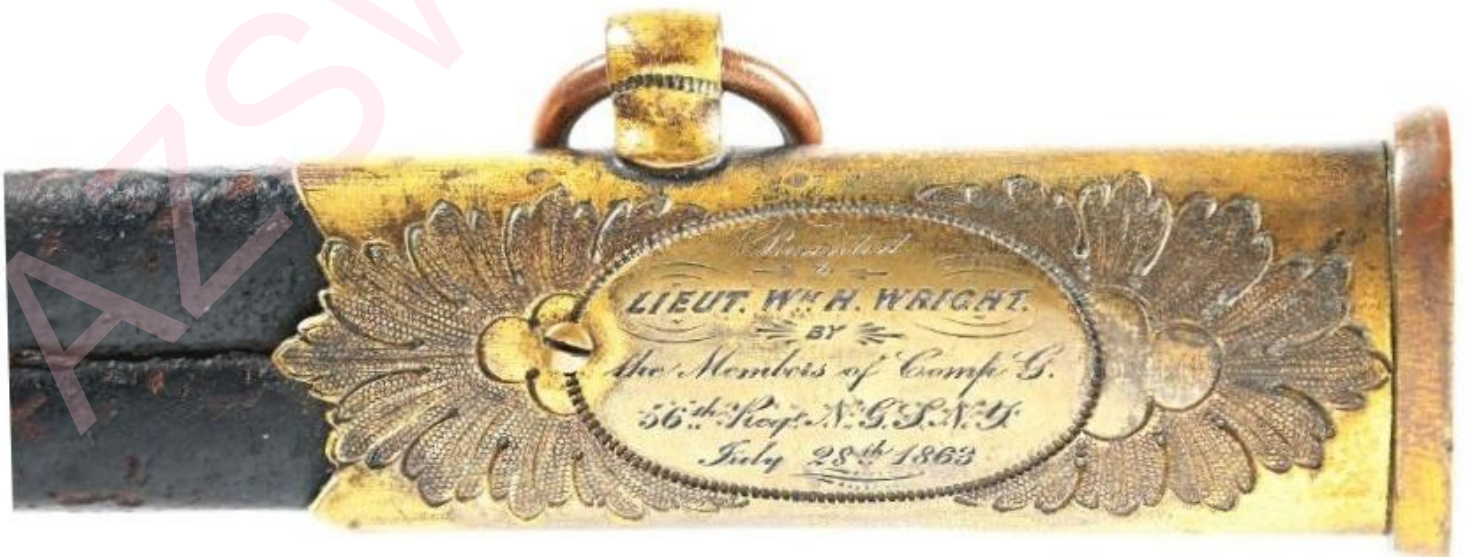 Presented
to
LIEUT. Wᴹ H. WRIGHT.
BY
the Members of Comp. G.
56th Reg. N.G.S.N.Y.
July 28th 1863
AZSW